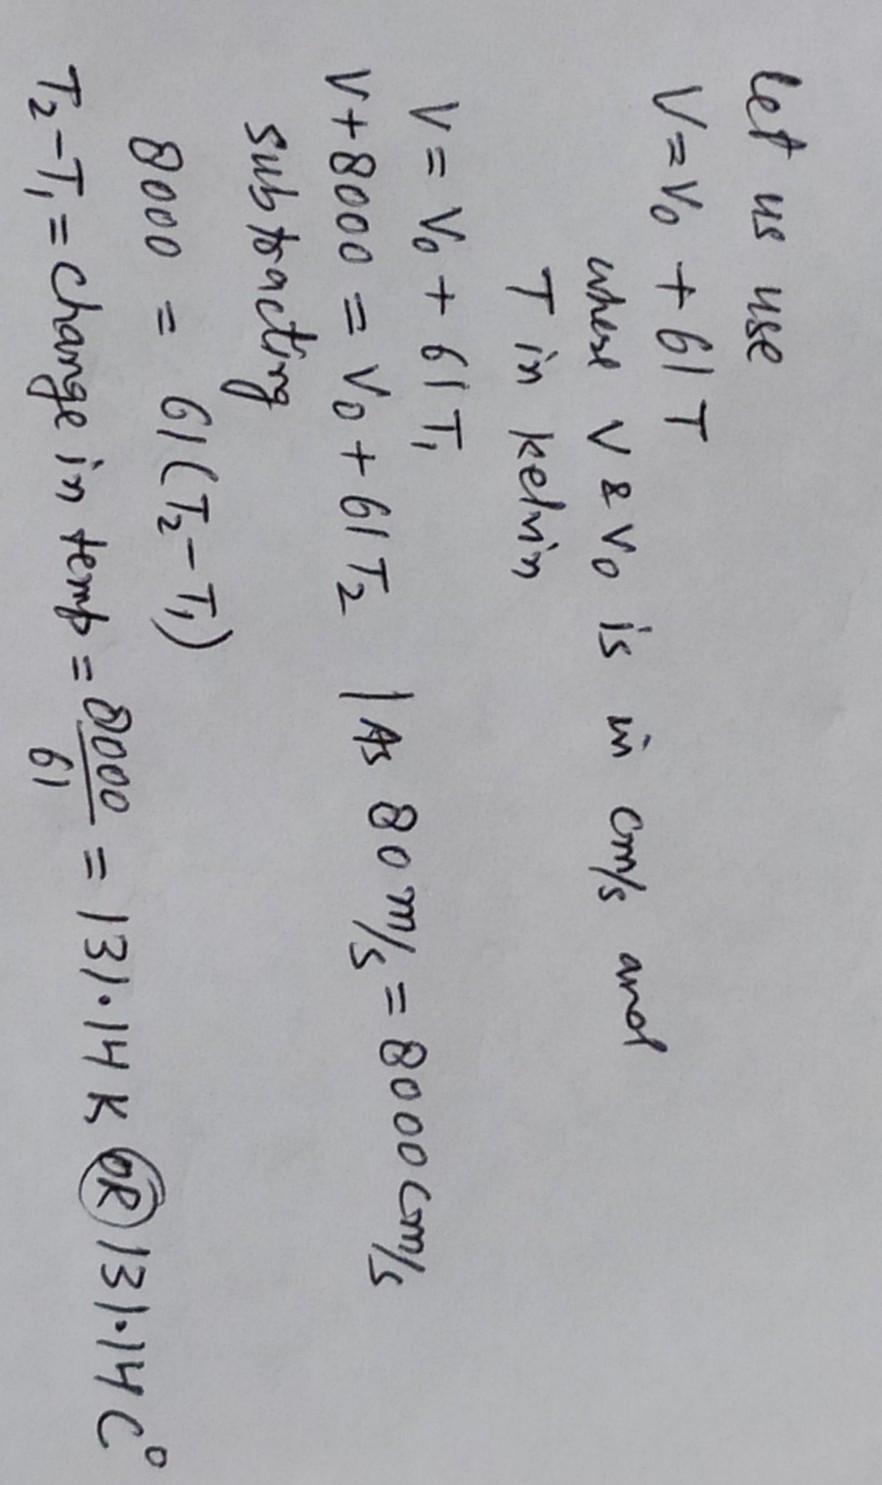 let us use
V = V₀ + 61 T
where V & V₀ is in cm/s and
T in kelvin
V = V₀ + 61 T₁
V + 8000 = V₀ + 61 T₂ | As 80 m/s = 8000 cm/s
subtracting
8000 = 61 (T₂ - T₁)
T₂ - T₁ = change in temp = 8000/61 = 131.14 K OR 131.14 C°